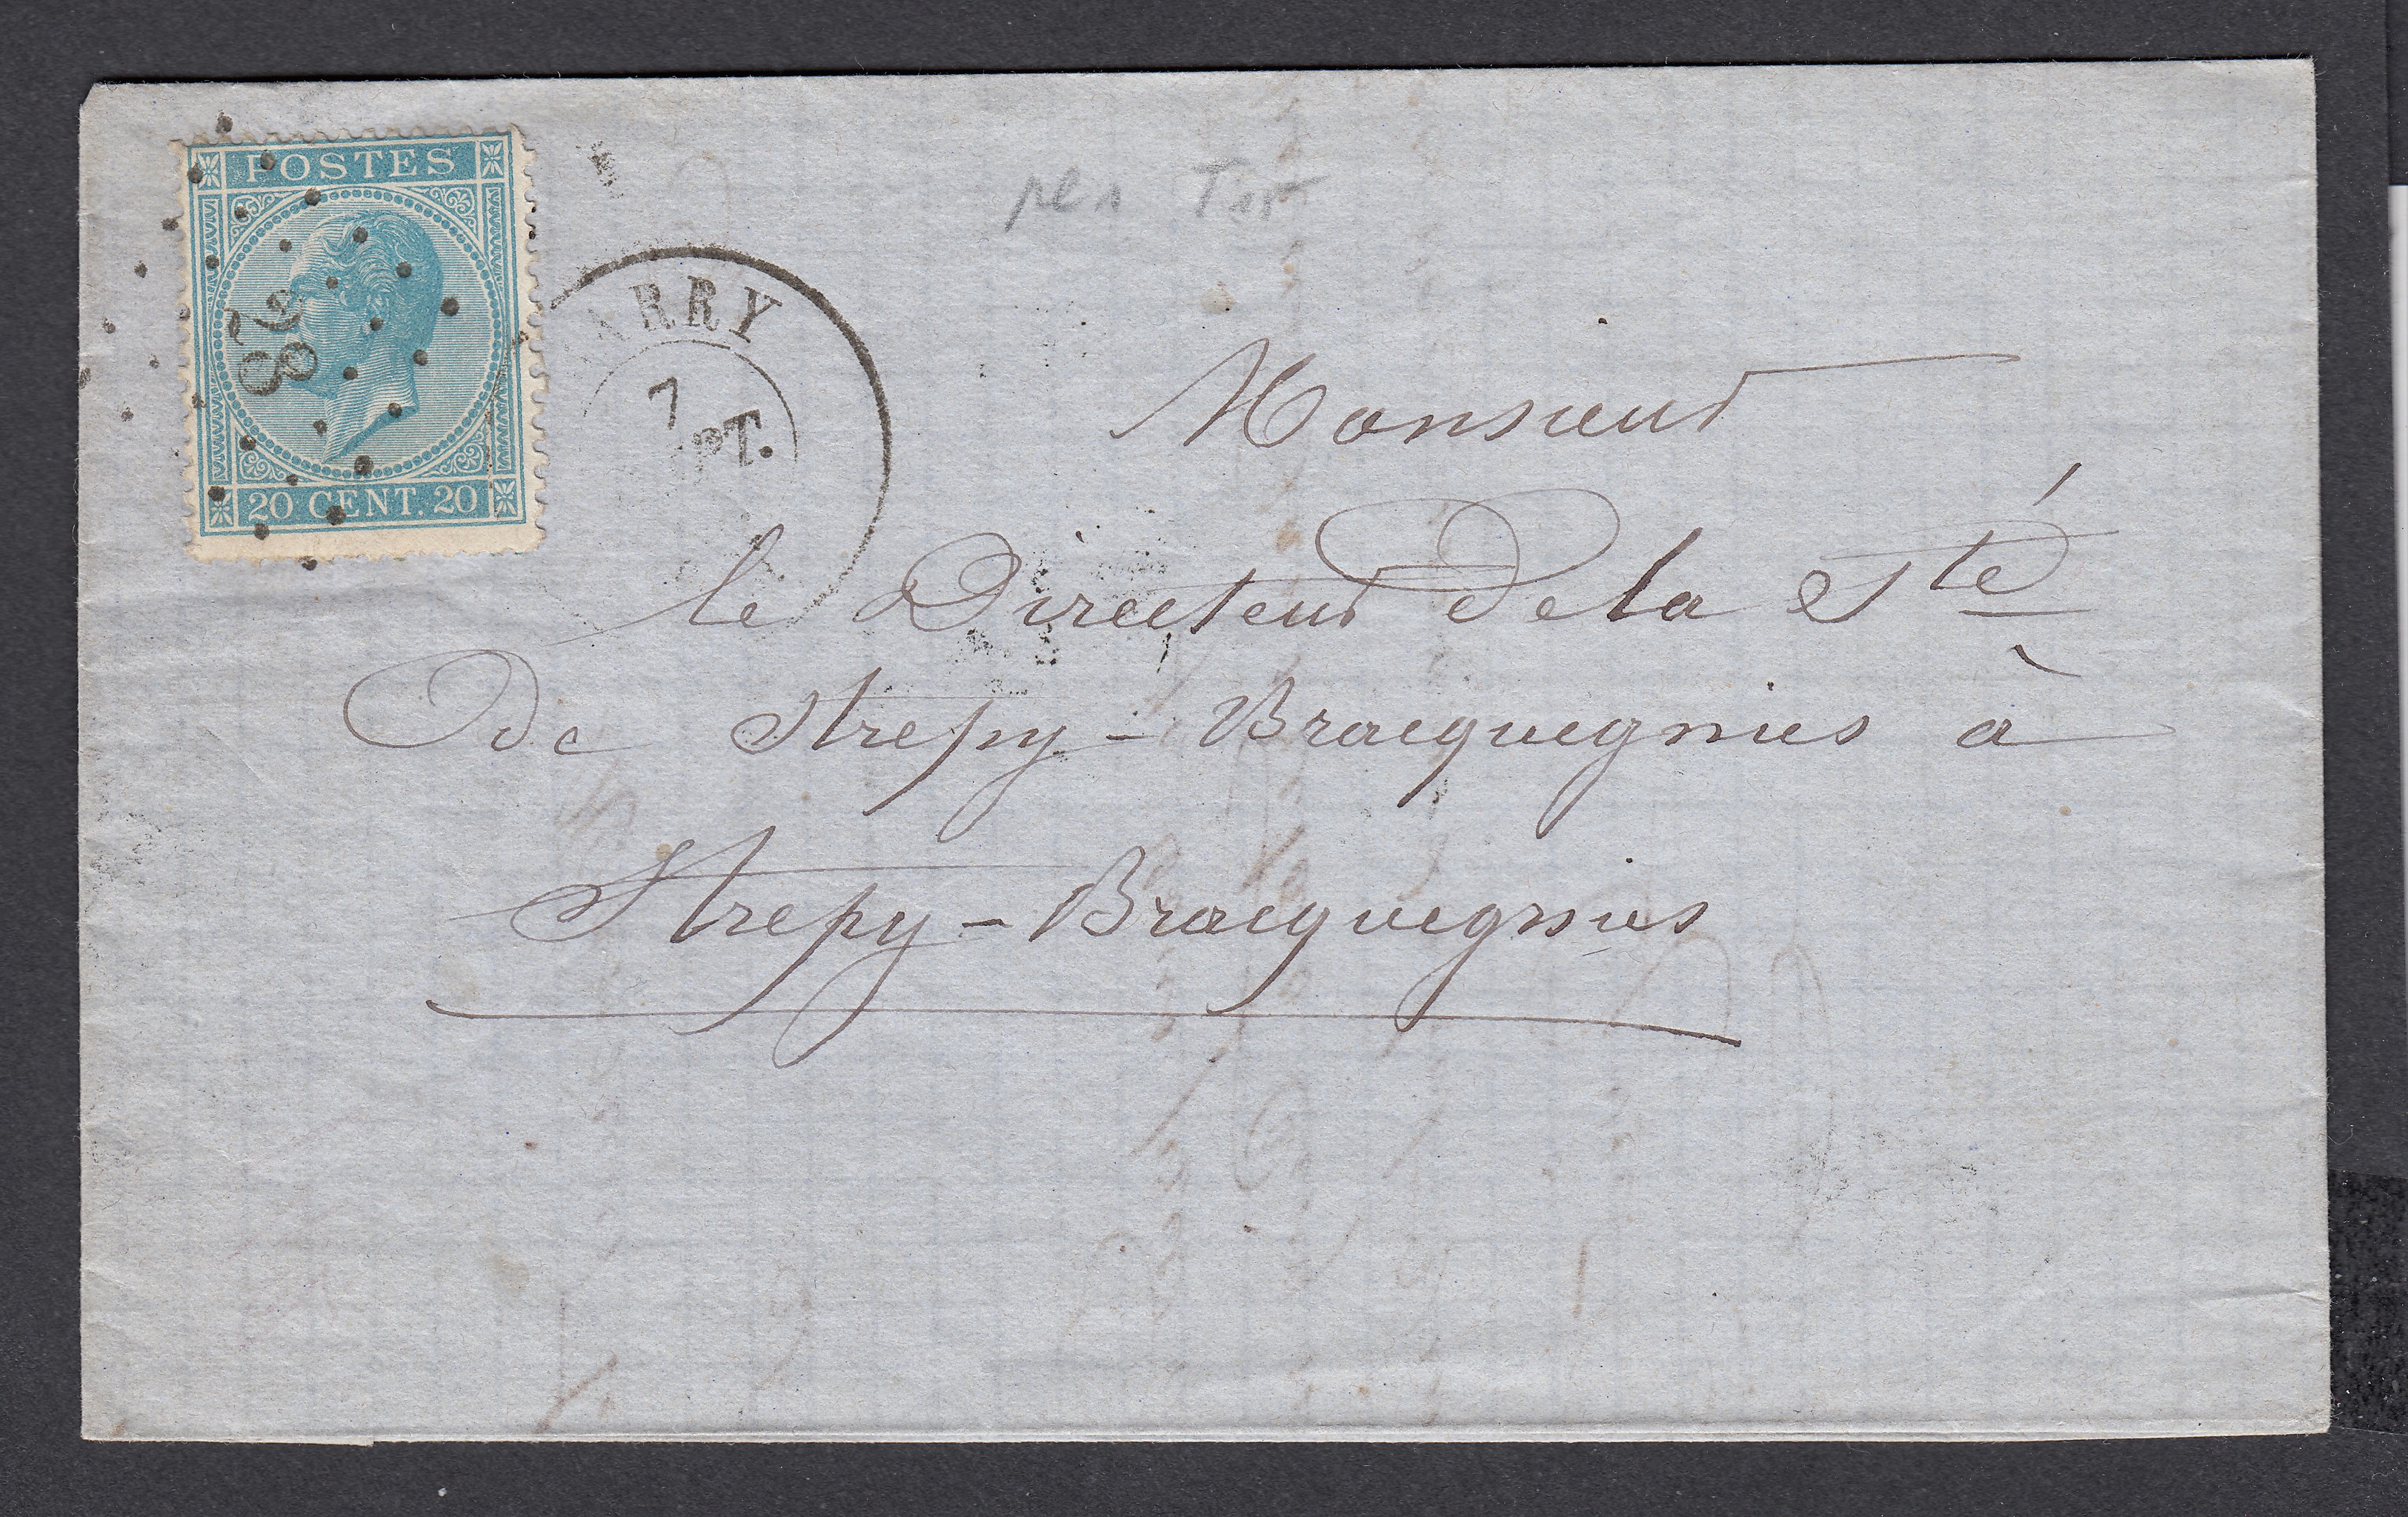 POSTES
20 CENT. 20
ARRY
7
PT.
Monsieur
le Directeur de la Sté
de Strepy-Bracquegnies à
Strepy-Bracquegnies